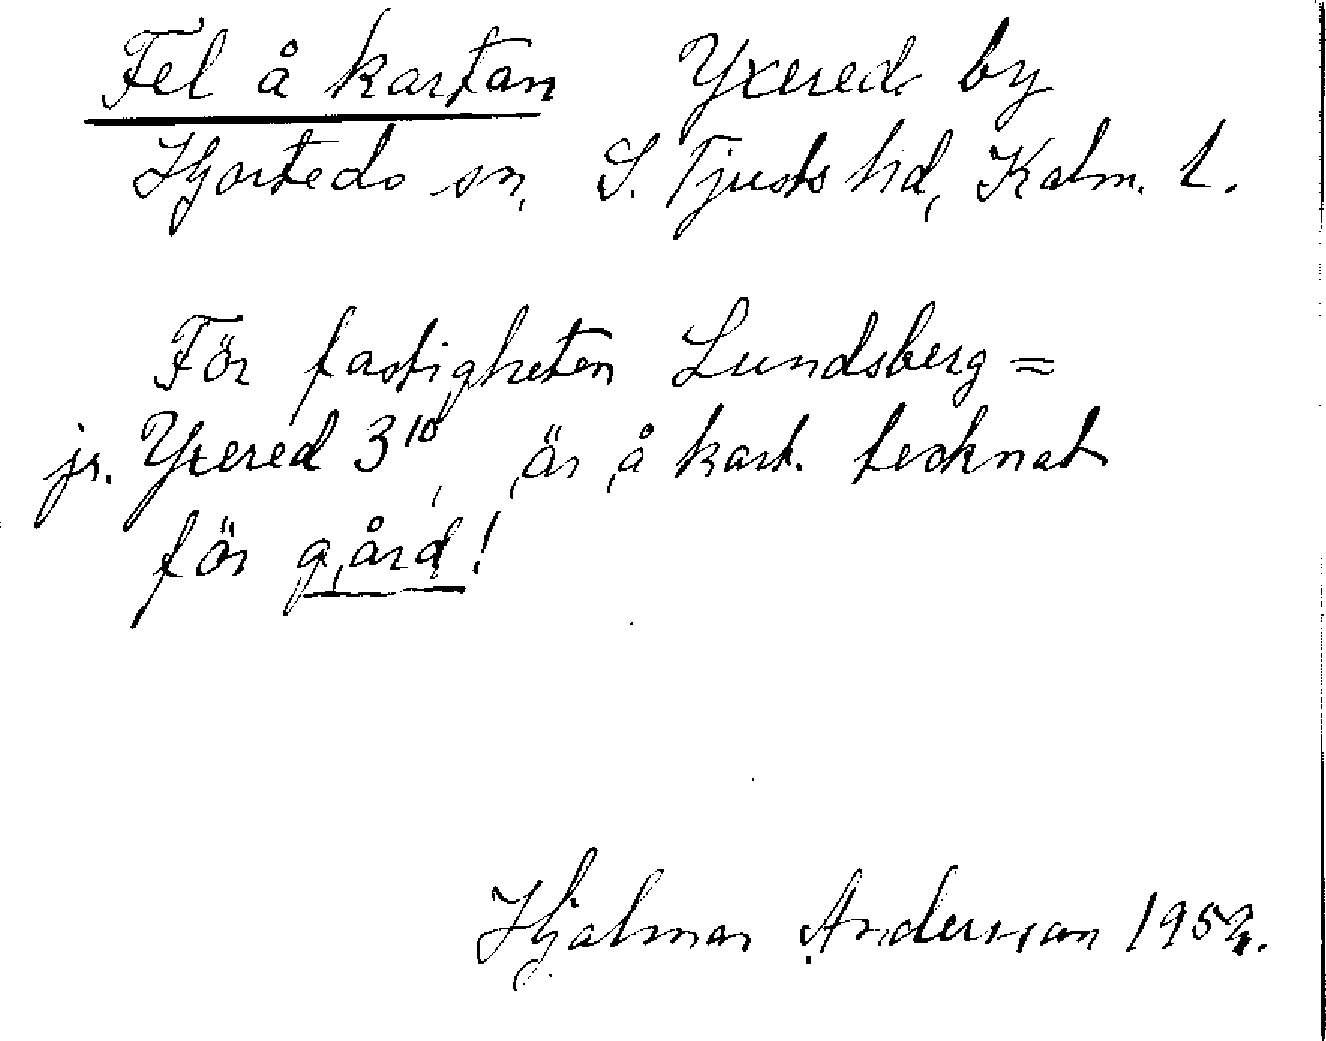 Fel å kartan Yxered by
Hjorteds sn, S. Tjusts hd, Kalm. l.
För fastigheten Lundsberg =
jr. Yxered 3¹⁰, är å kart. tecknat
för gård!
Hjalmar Andersson